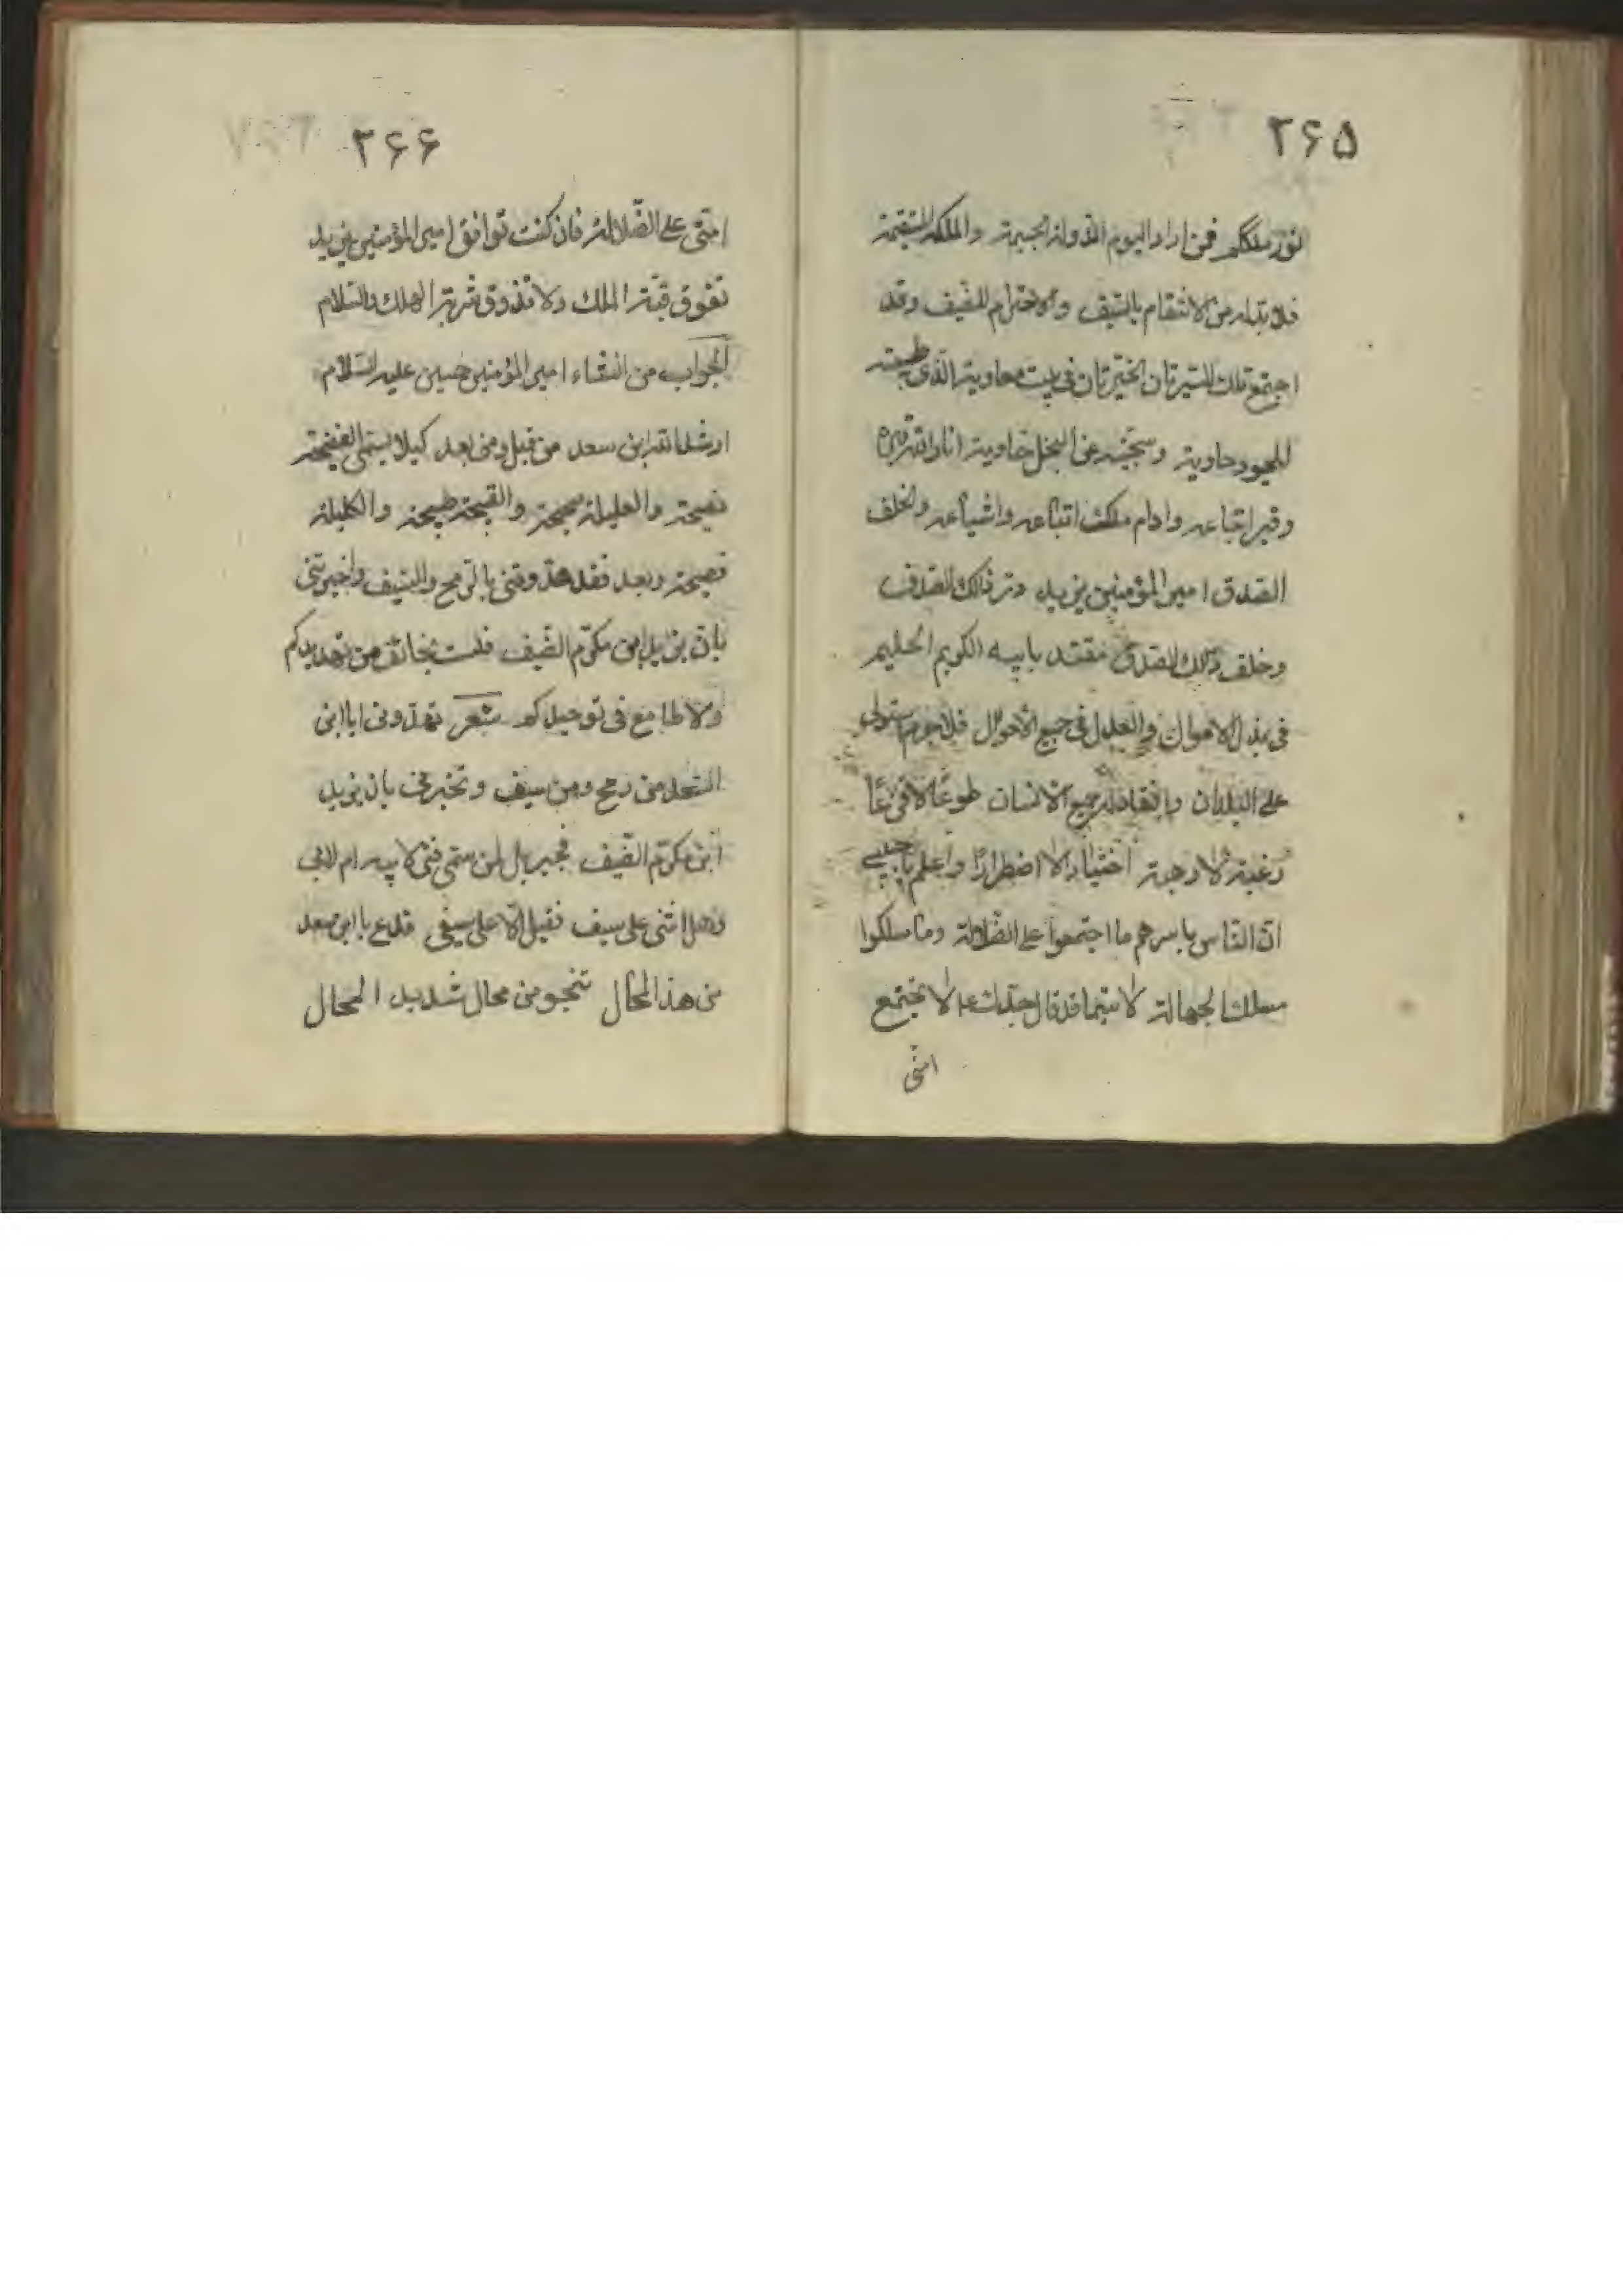 ۲۶۵
ملككم فمن اراد اليوم الدولة الجسيمة والملكة المستقيمة
فلا بد له من الانتقام بالسيف والاحترام للضيف وقد
اجتمع تلك السيرتان الخيرتان فى بيت معاوية الذى طبيعته
للجود حاوية وسجيته عن البخل خاوية انار الله
اتباعه وادام ملك اتباعه واشياعه والخلف
الصدق امير المؤمنين يزيد ذلك الصدف
وخلف ذلك الصدق مقتد بابيه الكريم الحليم
فى بذل الاموال والعدل فى جميع الاحوال فلا جرم
على البلدان وانقاد له جميع الانسان طوعًا لا
رغبة لا اختيارا لا اضطرارًا واعلم يا حبيبى
ان الناس باسرهم ما اجتمعوا على الضلالة وما سلكوا
مسلك الجهالة لا سيما قد قال جدك لا تجتمع
امتى
۲۶۶
امتى على الضلالة فان كنت توافق امير المؤمنين يزيد
تفوق قبة الملك ولا تذوق شربة الهلك والسلام
الجواب من انشاء امير المؤمنين حسين عليه السلام
ارشد الله ابن سعد من قبل ومن بعد كيلا يسمى الفضيحة
نصيحة والعليلة صحيحة والقبيحة والكليلة
فصيحة وبعد فقد هددتنى بالرمح والسيف واخبرتنى
بان يزيد ابن مكرم الضيف فلست بخائف من تهديدكم
ولا طامع فى شعر تهددونى ايا ابن
السعد من رمح ومن سيف وتخبرنى بان يزيد
ابن مكرم الضيف فجبريل
وهل اثنى على سيف فقيل الا على سيفى فدع يا ابن سعد
من هذا المحال تنجو من محال شديد المحال